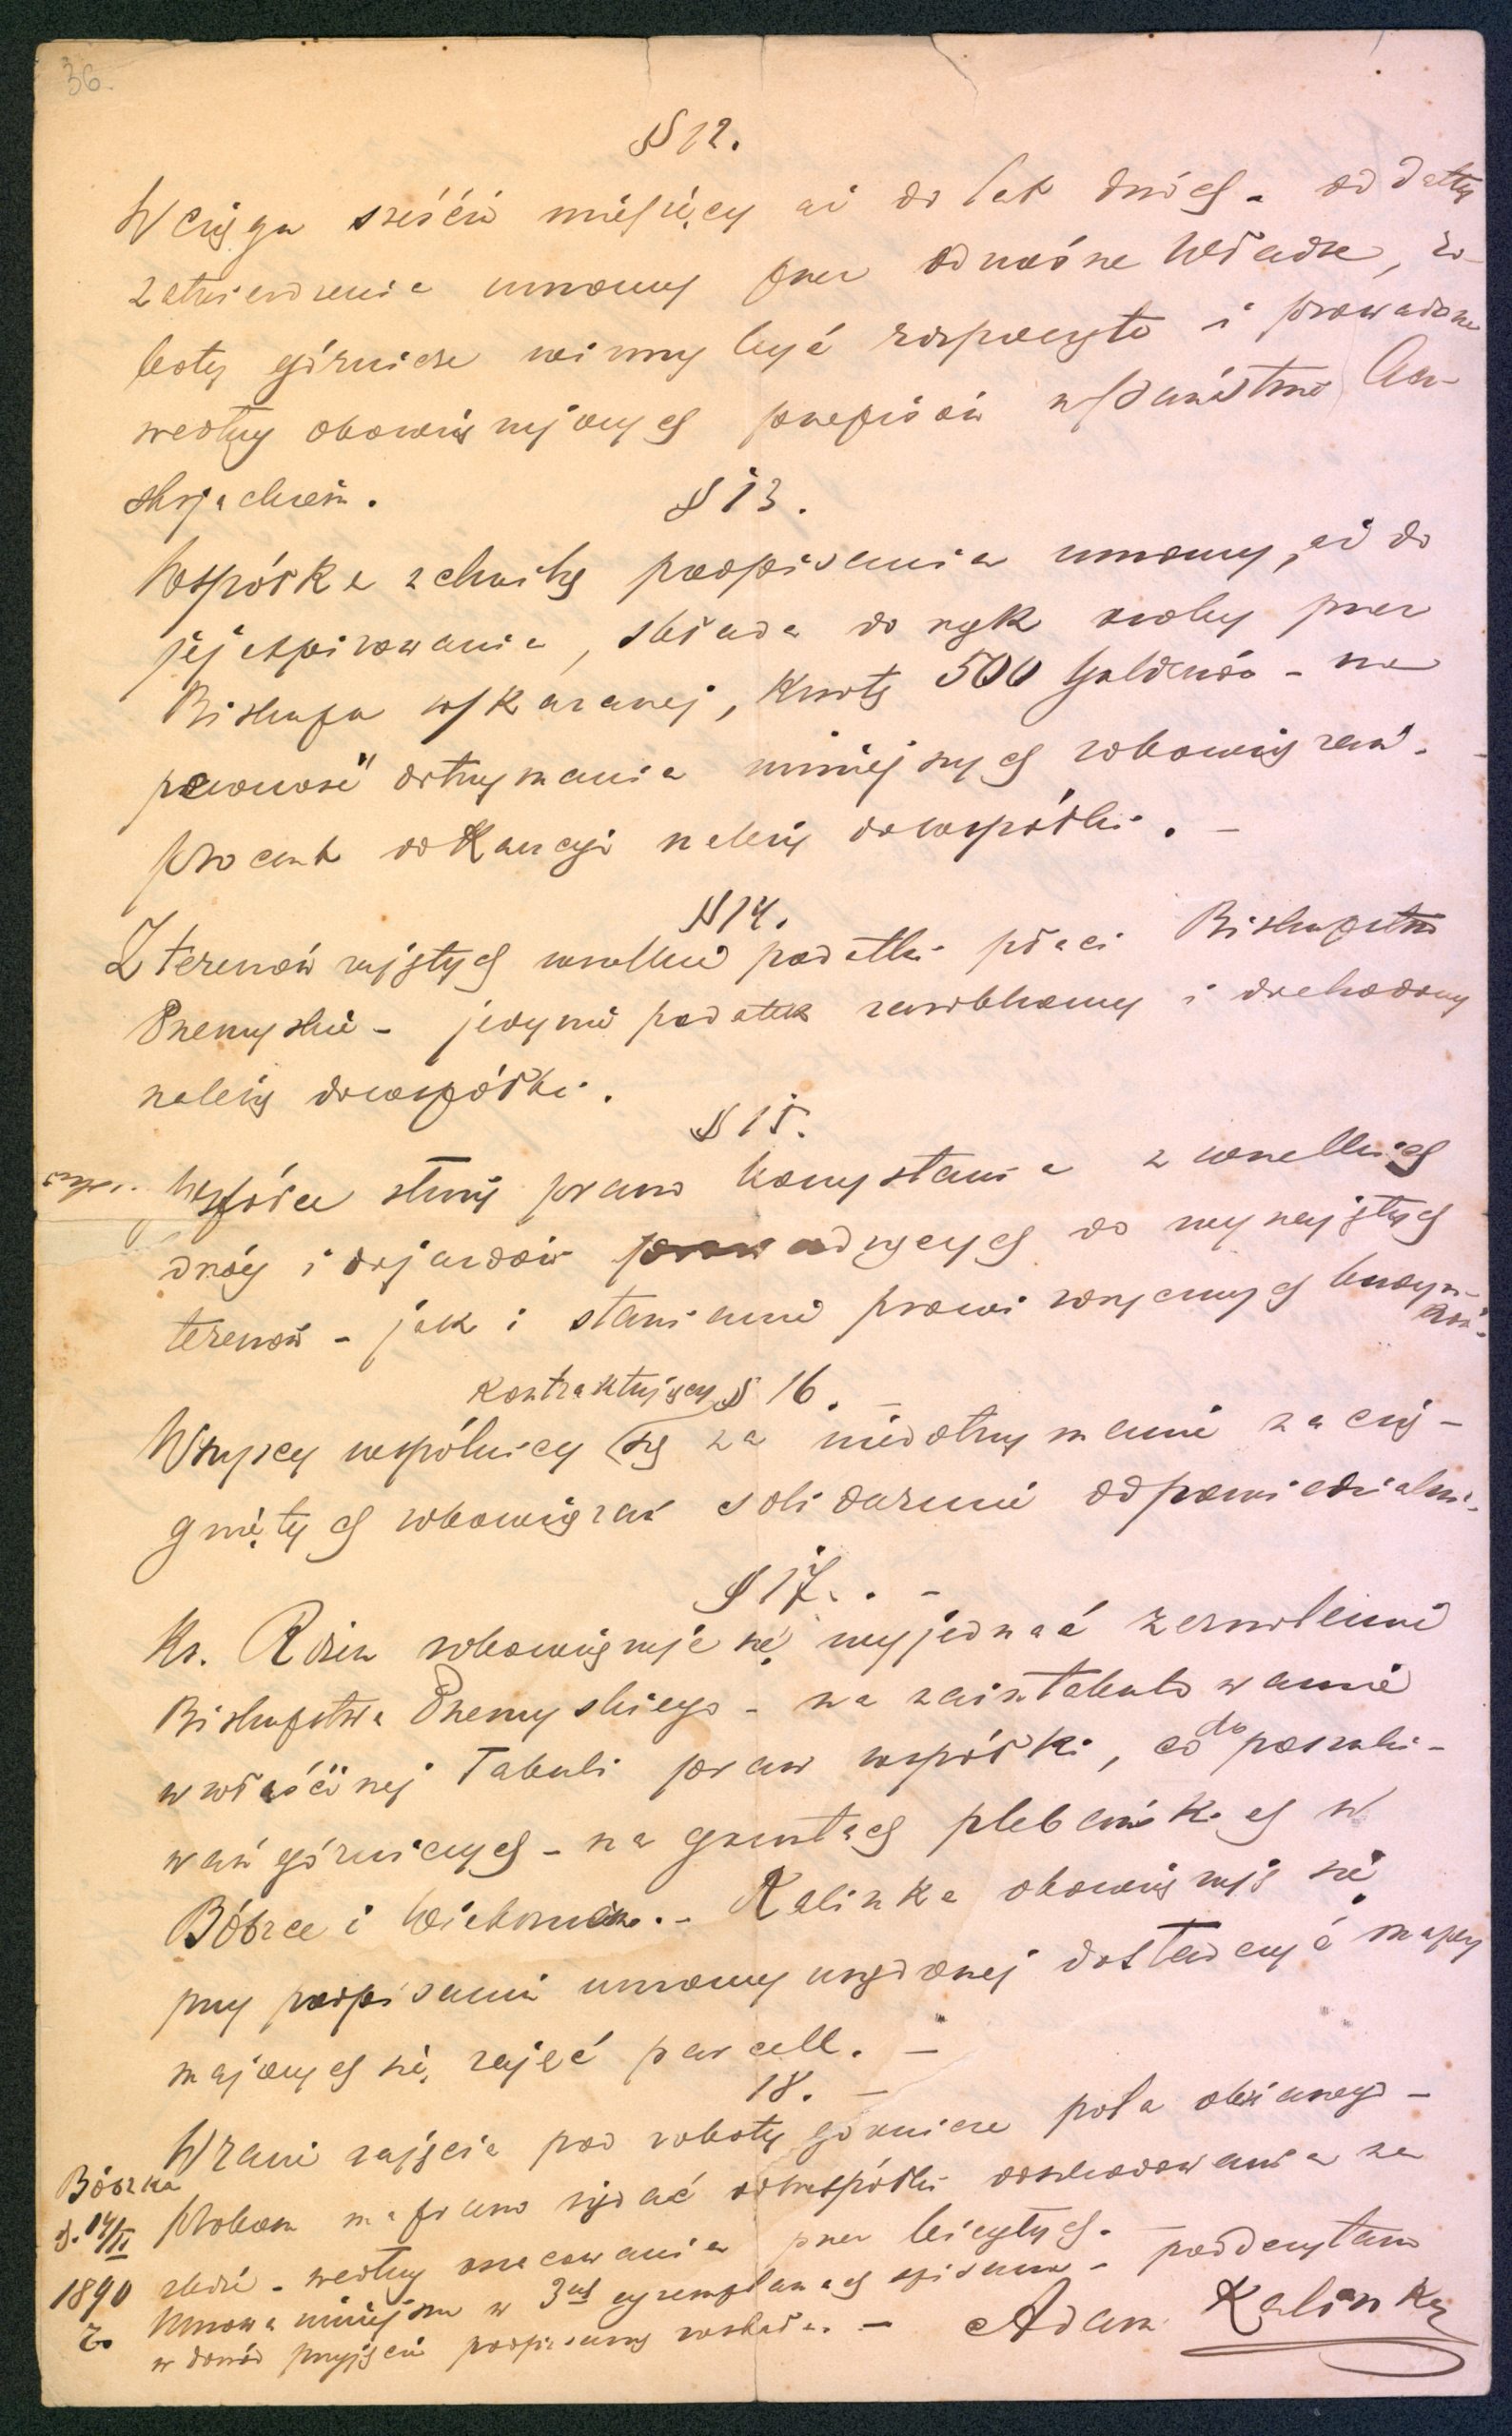 36.
§ 12.
W ciągu sześciu miesięcy aż do lat dwóch - od daty
zatwierdzenia umowy przez odnośne Władze, ro-
boty górnicze winny być rozpoczęte i prowadzone
według obowiązujących przepisów w Państwie Au-
stryjackiem.
§ 13.
Wspólka z chwilą podpisania umowy, aż do
jej expirowania, składa do rąk osoby przez
Biskupa wskazanej, kwotę 500 Guldenów - na
pewność dotrzymania niniejszych zobowiązań.
procent od Kaucyi należy do wspólki. -
§ 14.
Z terenów zajętych wszelkie podatki płaci Biskupstwo
Przemyskie - jedynie podatek zarobkowy i dochodowy
należy do wspólki.
§ 15.
Wspólce służy prawo korzystania z wszelkich
dróg i dojazdów prowadzących do wynajętych
terenów - jak i stawiania prowizorycznych budyn-
ków.
§ 16. -
kontraktujący
Wszyscy wspólnicy są za niedotrzymanie zacią-
gniętych zobowiązań solidarnie odpowiedzialni.
§ 17. . -
Ks. Rdzen zobowiązuje się wyjednać zezwolenie
Biskupstwa Przemyskiego - na zaintabulowanie
w właściwej Tabuli praw wspólki, co do poszuki-
wań górniczych - na gruntach plebańskich w
Bóbrce i Wietrznie. - Kalinka obowiązuje się
przy podpisaniu umowy urzędowej dostarczyć mapy
mających się zająć parcell. -
18. -
W razie zajęcia pod roboty górnicze pola obsianego -
Proboszcz ma prawo żądać od wspólki odszkodowania za
szkodę - według oszacowania przez biegłych. -
Umowa niniejsza w 3ch egzemplarzach spisana - poddczytano
w dowód przyjęcia podpisaną została. -
Bóbrka
d. 14/II
1890
r.
Adam Kalinka